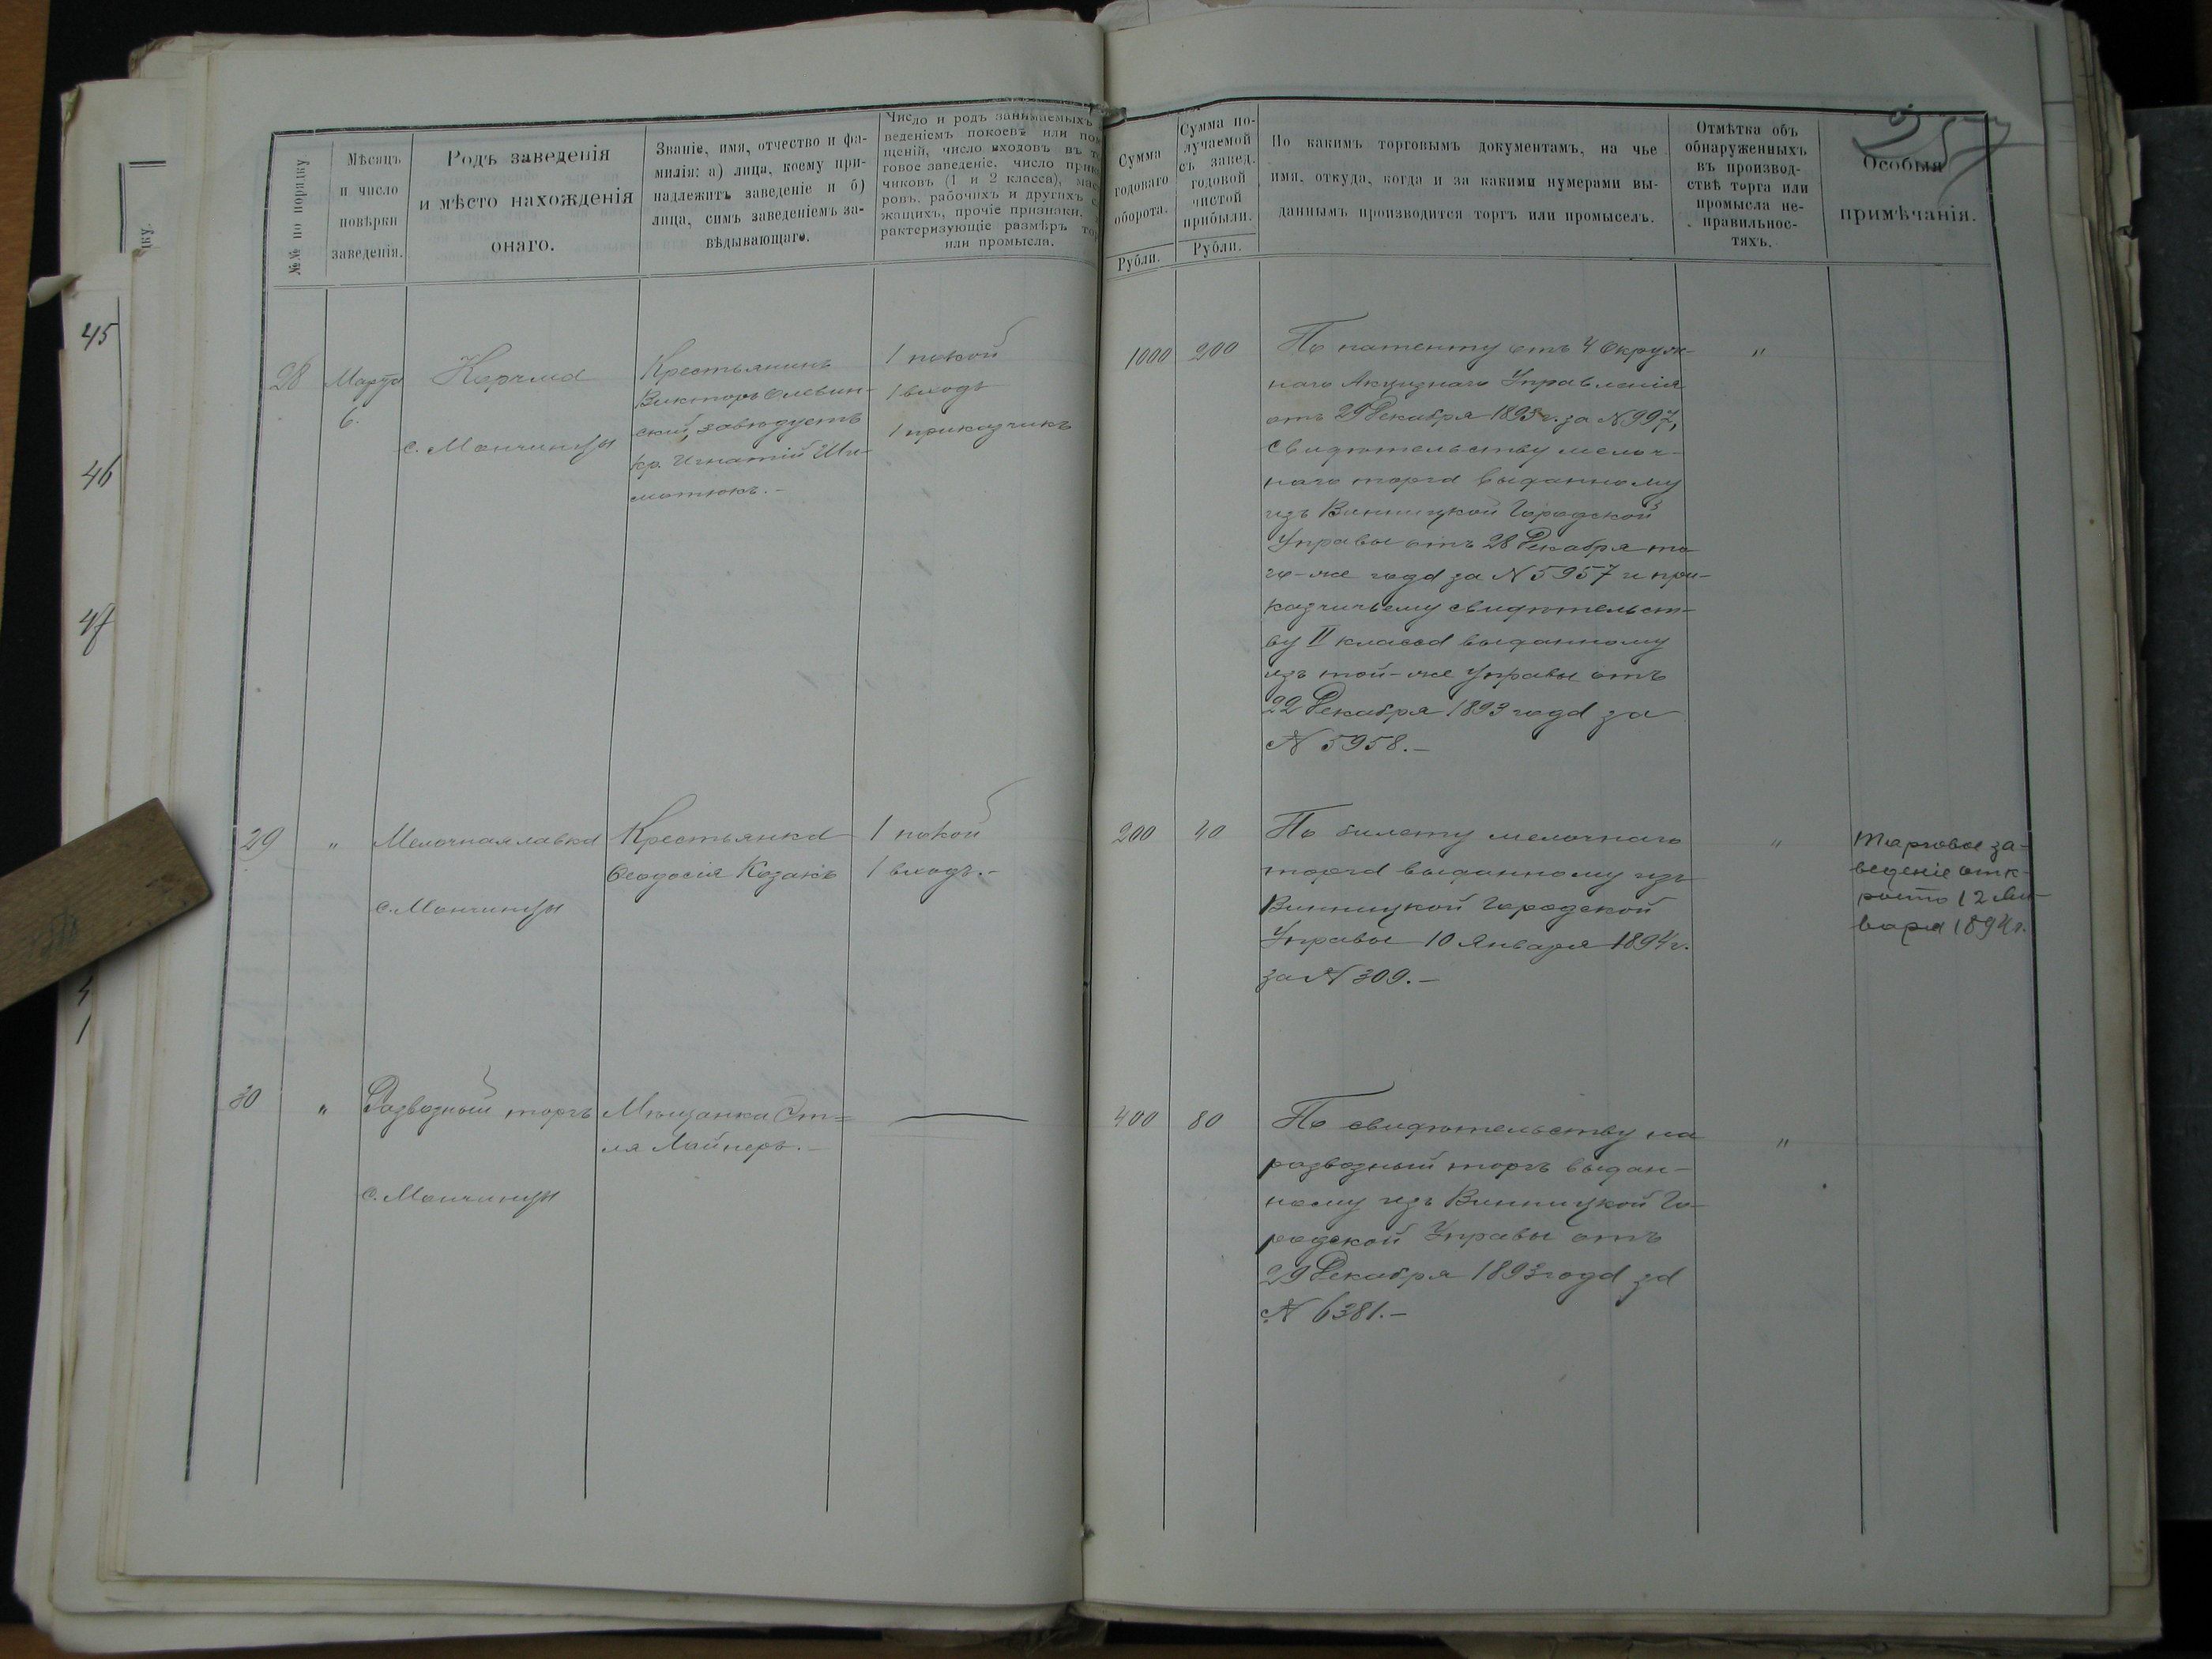 257
№№ по порядку
Мѣсяцъ
и число
повѣрки
заведенія.
Родъ заведенія
и мѣсто нахожденія
онаго.
Званіе, имя, отчество и фа-
милія: а) лица, коему при-
надлежитъ заведеніе и б)
лица, симъ заведеніемъ за-
вѣдывающаго.
Число и родъ занимаемыхъ
веденіемъ покоевъ или
щеній, число входовъ въ
говое заведеніе, число
чиковъ (1 и 2 класса),
ровъ, рабочихъ и другихъ
жащихъ, прочіе признаки,
рактеризующіе размѣръ
или промысла.
Сумма
годоваго
оборота.
Рубли.
Сумма по-
лучаемой
съ завед.
годовой
чистой
прибыли.
Рубли.
По какимъ торговымъ документамъ, на чье
имя, откуда, когда и за какими нумерами вы-
даннымъ производится торгъ или промыселъ.
Отмѣтка объ
обнаруженныхъ
въ производ-
ствѣ торга или
промысла не-
правильнос-
тяхъ.
Особыя
примѣчанія.
45
46
47
28
Марта
6.
Корчма
с. Мончинцы
Крестьянинъ
Викторъ Олевин-
скій, завѣдуетъ
кр. Игнатій
1 покой
1 входъ
1 приказчикъ
1000
200
По патенту отъ 4 Окруж-
наго Акцизнаго Управленія
отъ 29 Декабря 1893 г. за N 997,
свидѣтельству мелоч-
наго торга выданному
изъ Винницкой Городской
Управы отъ 28 Декабря то
го-же года за N 5957 и при-
казчичьему свидѣтельст-
ву II класса выданному
изъ той-же Управы отъ
22 Декабря 1893 года за
N 5958.-
"
29
"
Мелочная лавка
с. Мончинцы
Крестьянка
Ѳеодосія Козакъ
1 покой
1 входъ.-
200
40
По билету мелочнаго
торга выданному изъ
Винницкой Городской
Управы 10 Января 1894 г.
за N 309.-
"
Торговое за-
веденіе отк-
рыто 12 Ян-
варя 1894 г.
30
"
Развозный торгъ
с. Мончинцы
Мѣщанка Эт=
ля Лайнеръ.-
400
80
По свидѣтельству на
развозный торгъ выдан-
ному изъ Винницкой Го-
родской Управы отъ
29 Декабря 1893 года за
N 6381.-
"